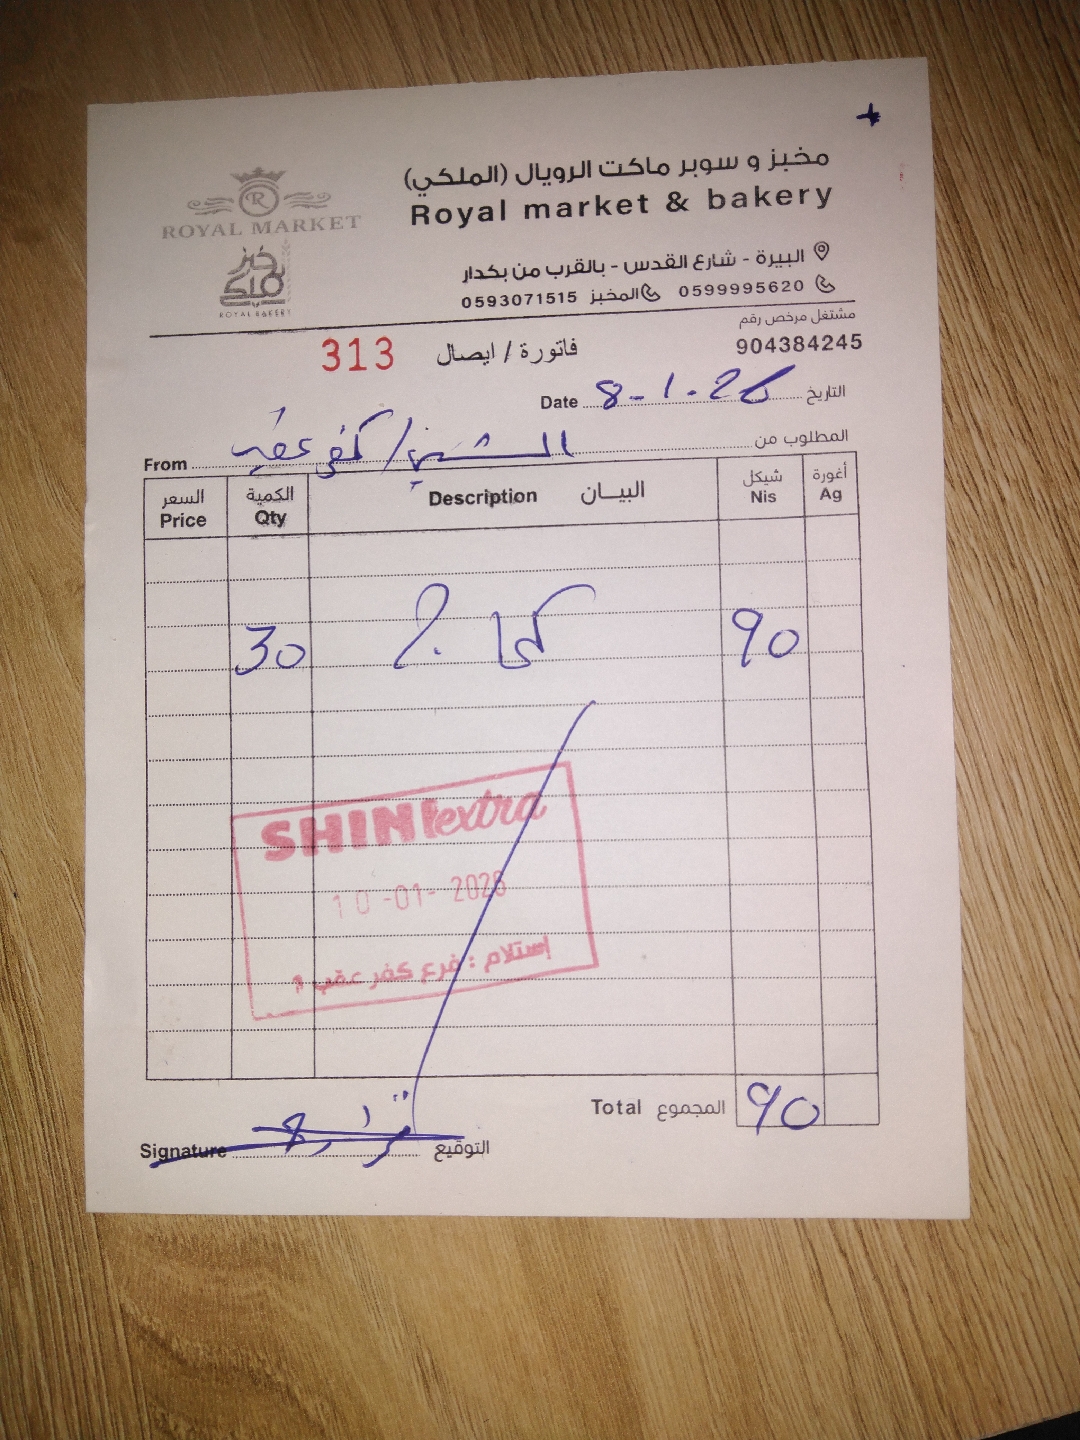 مخبز و سوبر ماكت الرويال (الملكي)
Royal market & bakery
ROYAL MARKET
خبز ملكي
ROYAL BAKERY
البيرة - شارع القدس - بالقرب من بكدار
0599995620 المخبز 0593071515
مشتغل مرخص رقم
904384245
فاتورة / ايصال 313
التاريخ 8-1-26 Date
المطلوب من الشيني / كفر عقب From
أغورة شيكل البيــان الكمية السعر
Ag Nis Description Qty Price
90 كماج 30
SHINI extra
10-01-2026
إستلام : فرع كفر عقب
90 المجموع Total
التوقيع Signature